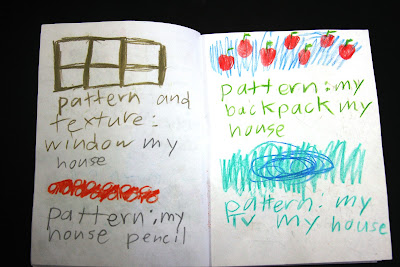 pattern and
texture:
window my
house
pattern:my
house pencil
pattern:my
backpack my
house
pattern: my
TV my house